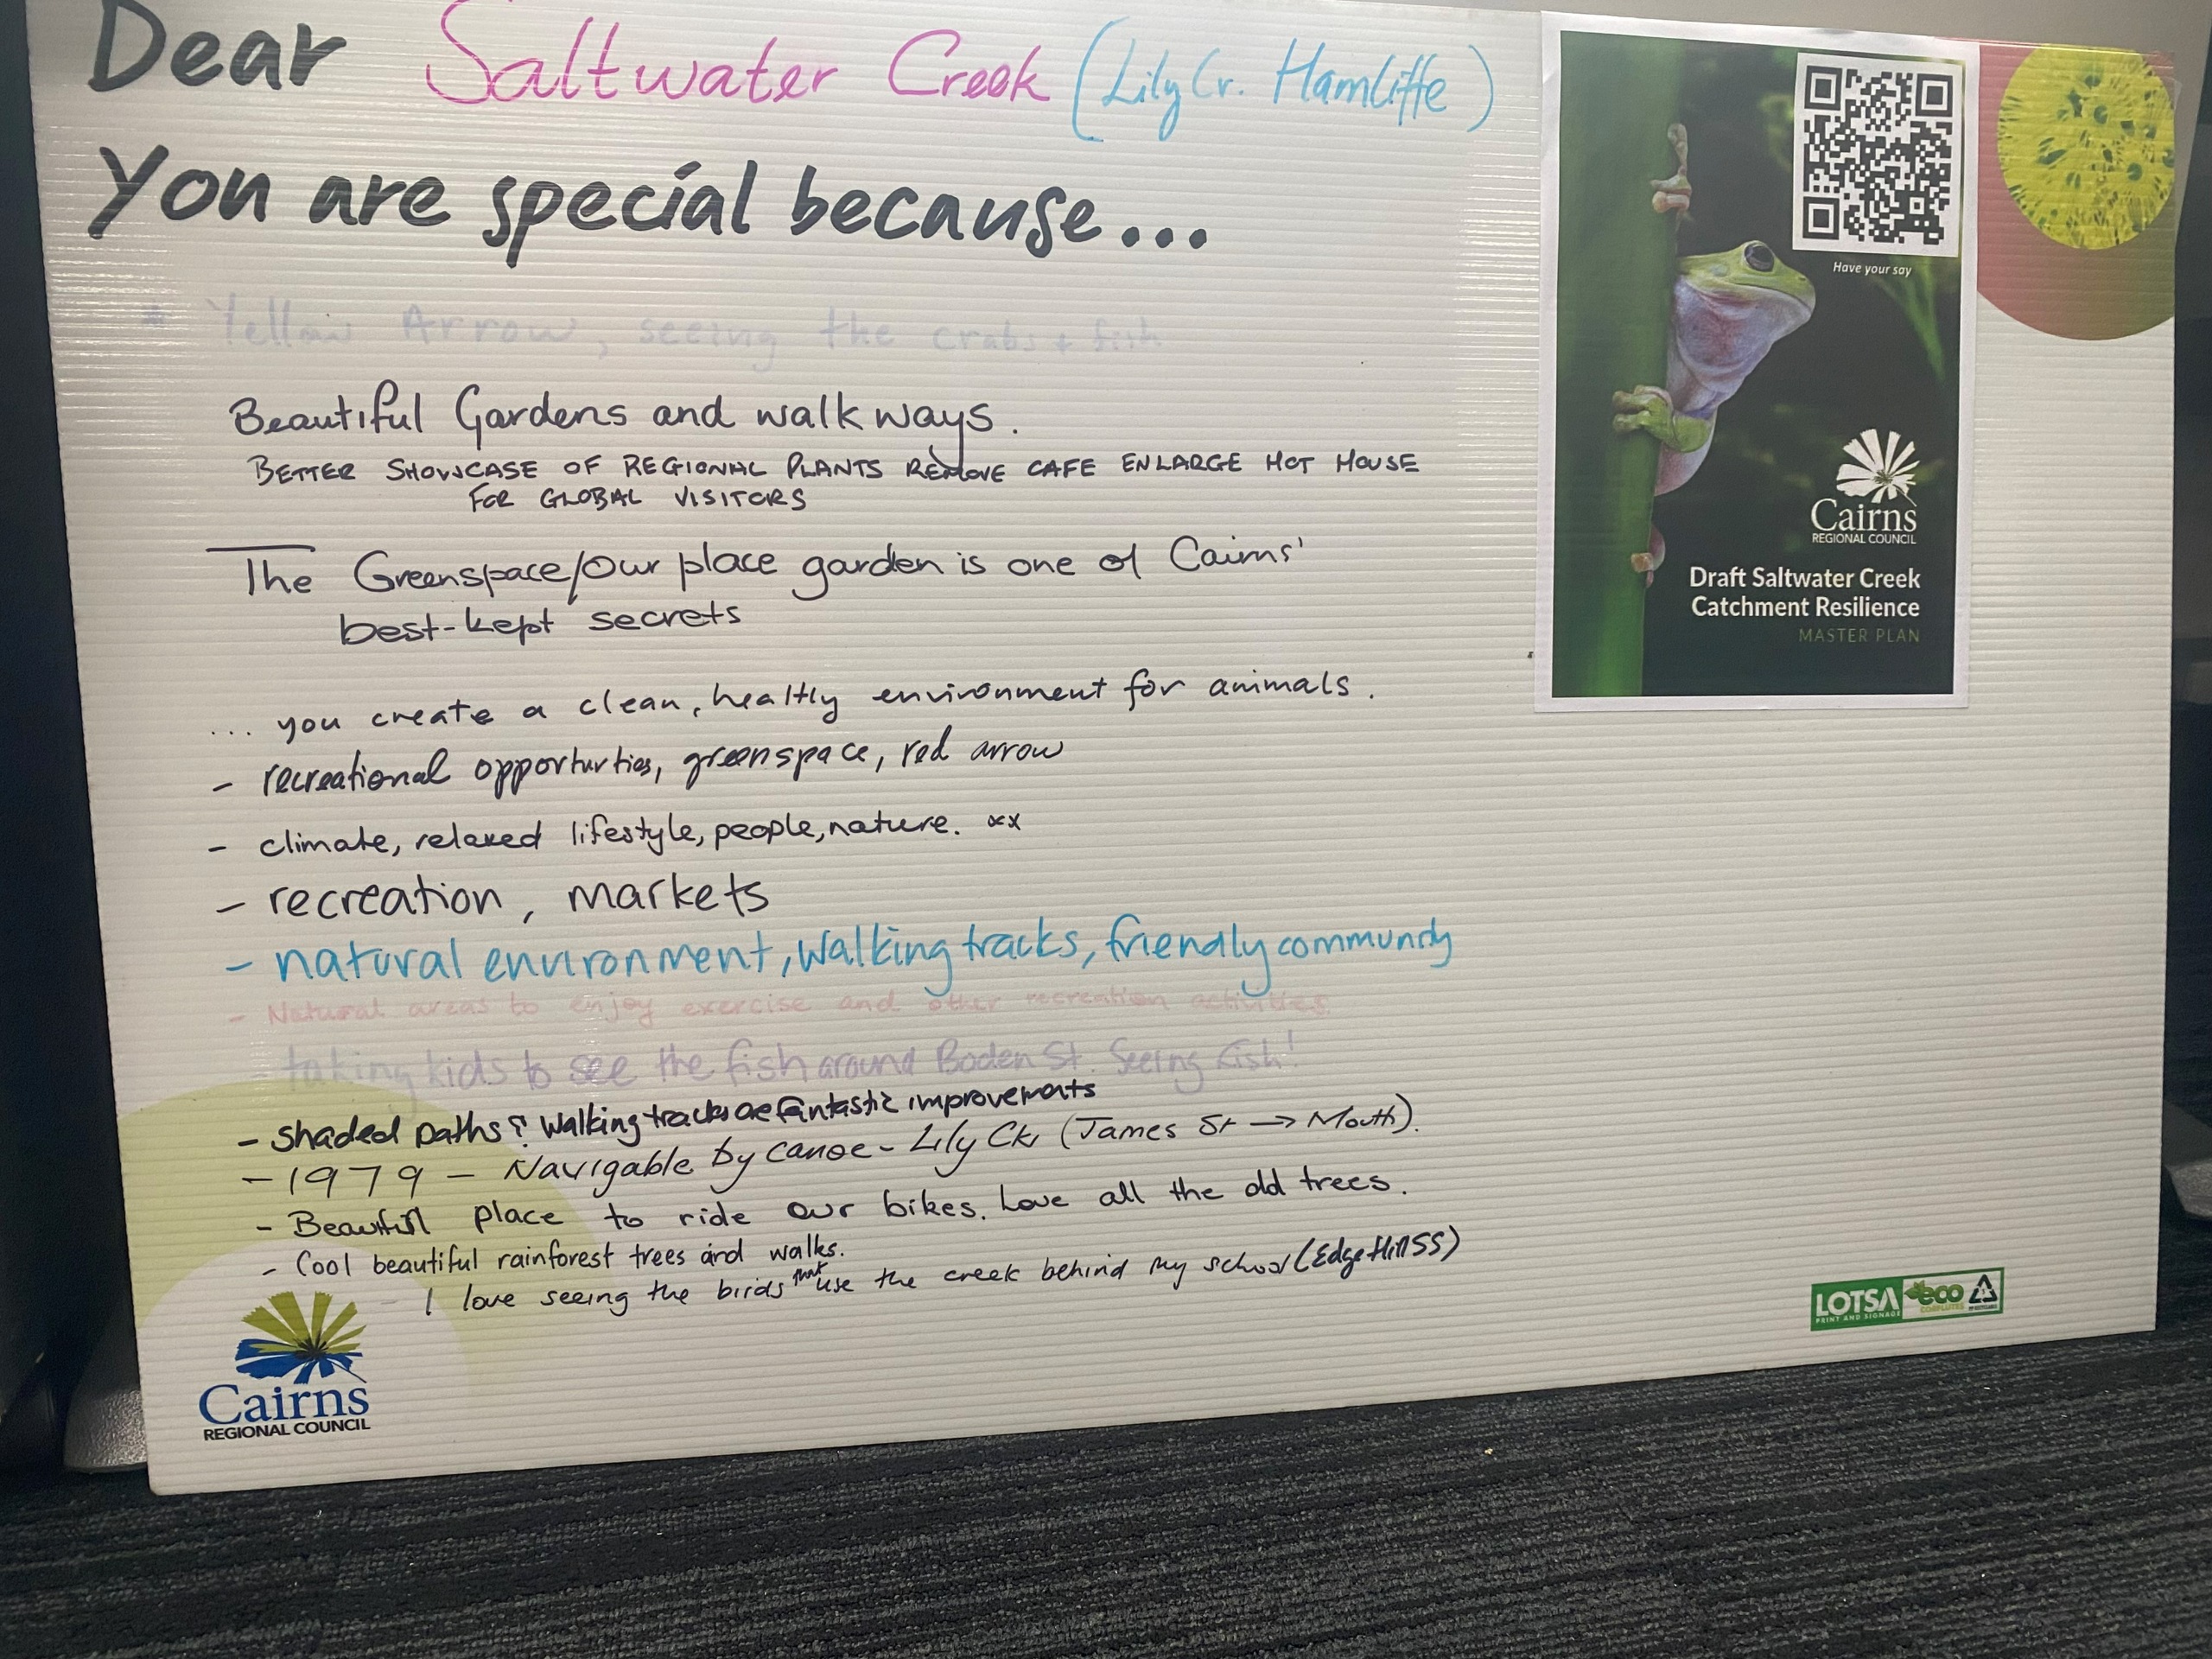 Dear Saltwater Creek (Lily Cr. Hamliffe)
You are special because...
* Yellow Arrow, seeing the crabs + fish
Beautiful Gardens and walkways.
BETTER SHOWCASE OF REGIONAL PLANTS REMOVE CAFE ENLARGE HOT HOUSE
FOR GLOBAL VISITORS
The Greenspace/Our place garden is one of Cairns'
best-kept secrets
... you create a clean, healtly environment for animals.
- recreational opporturties, greenspace, red arrow
- climate, relaxed lifestyle, people, nature. xx
- recreation, markets
- natural environment, walking tracks, friendly community
- Natural areas to enjoy exercise and other recreation activities.
taking kids to see the fish around Boden St. Seeing Fish!
- shaded paths & walking tracks are fantastic improvements
- 1979 - Navigable by canoe - Lily Ck, (James St → Mouth).
- Beautiful place to ride our bikes. Love all the old trees.
- Cool beautiful rainforest trees and walks.
- I love seeing the birds that use the creek behind my school (Edge Hill SS)
Cairns
REGIONAL COUNCIL
Have your say
Cairns
REGIONAL COUNCIL
Draft Saltwater Creek
Catchment Resilience
MASTER PLAN
LOTSA
PRINT AND SIGNAGE
eco